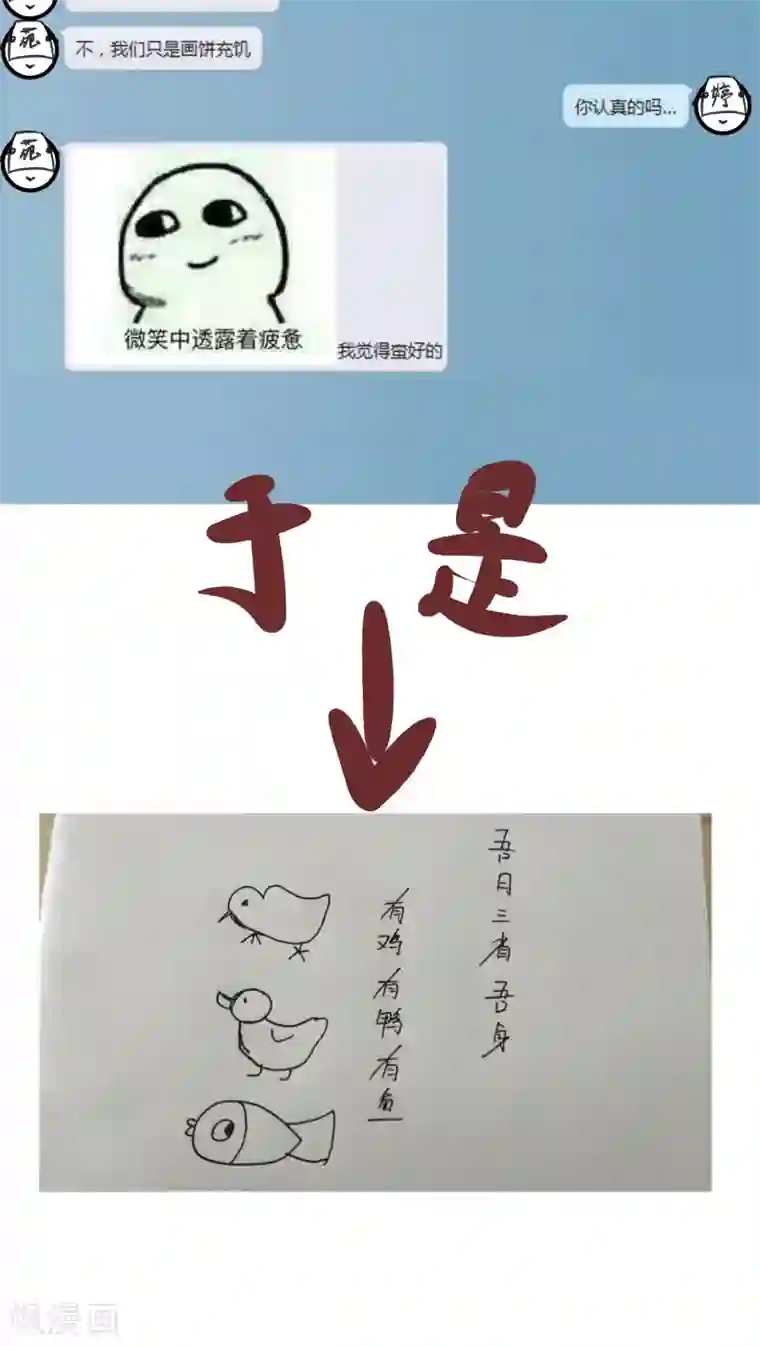 苑
不，我们只是画饼充饥
你认真的吗...
婷
苑
微笑中透露着疲惫
我觉得蛮好的
于是
吾日三省吾身
有鸡有鸭有鱼
飒漫画